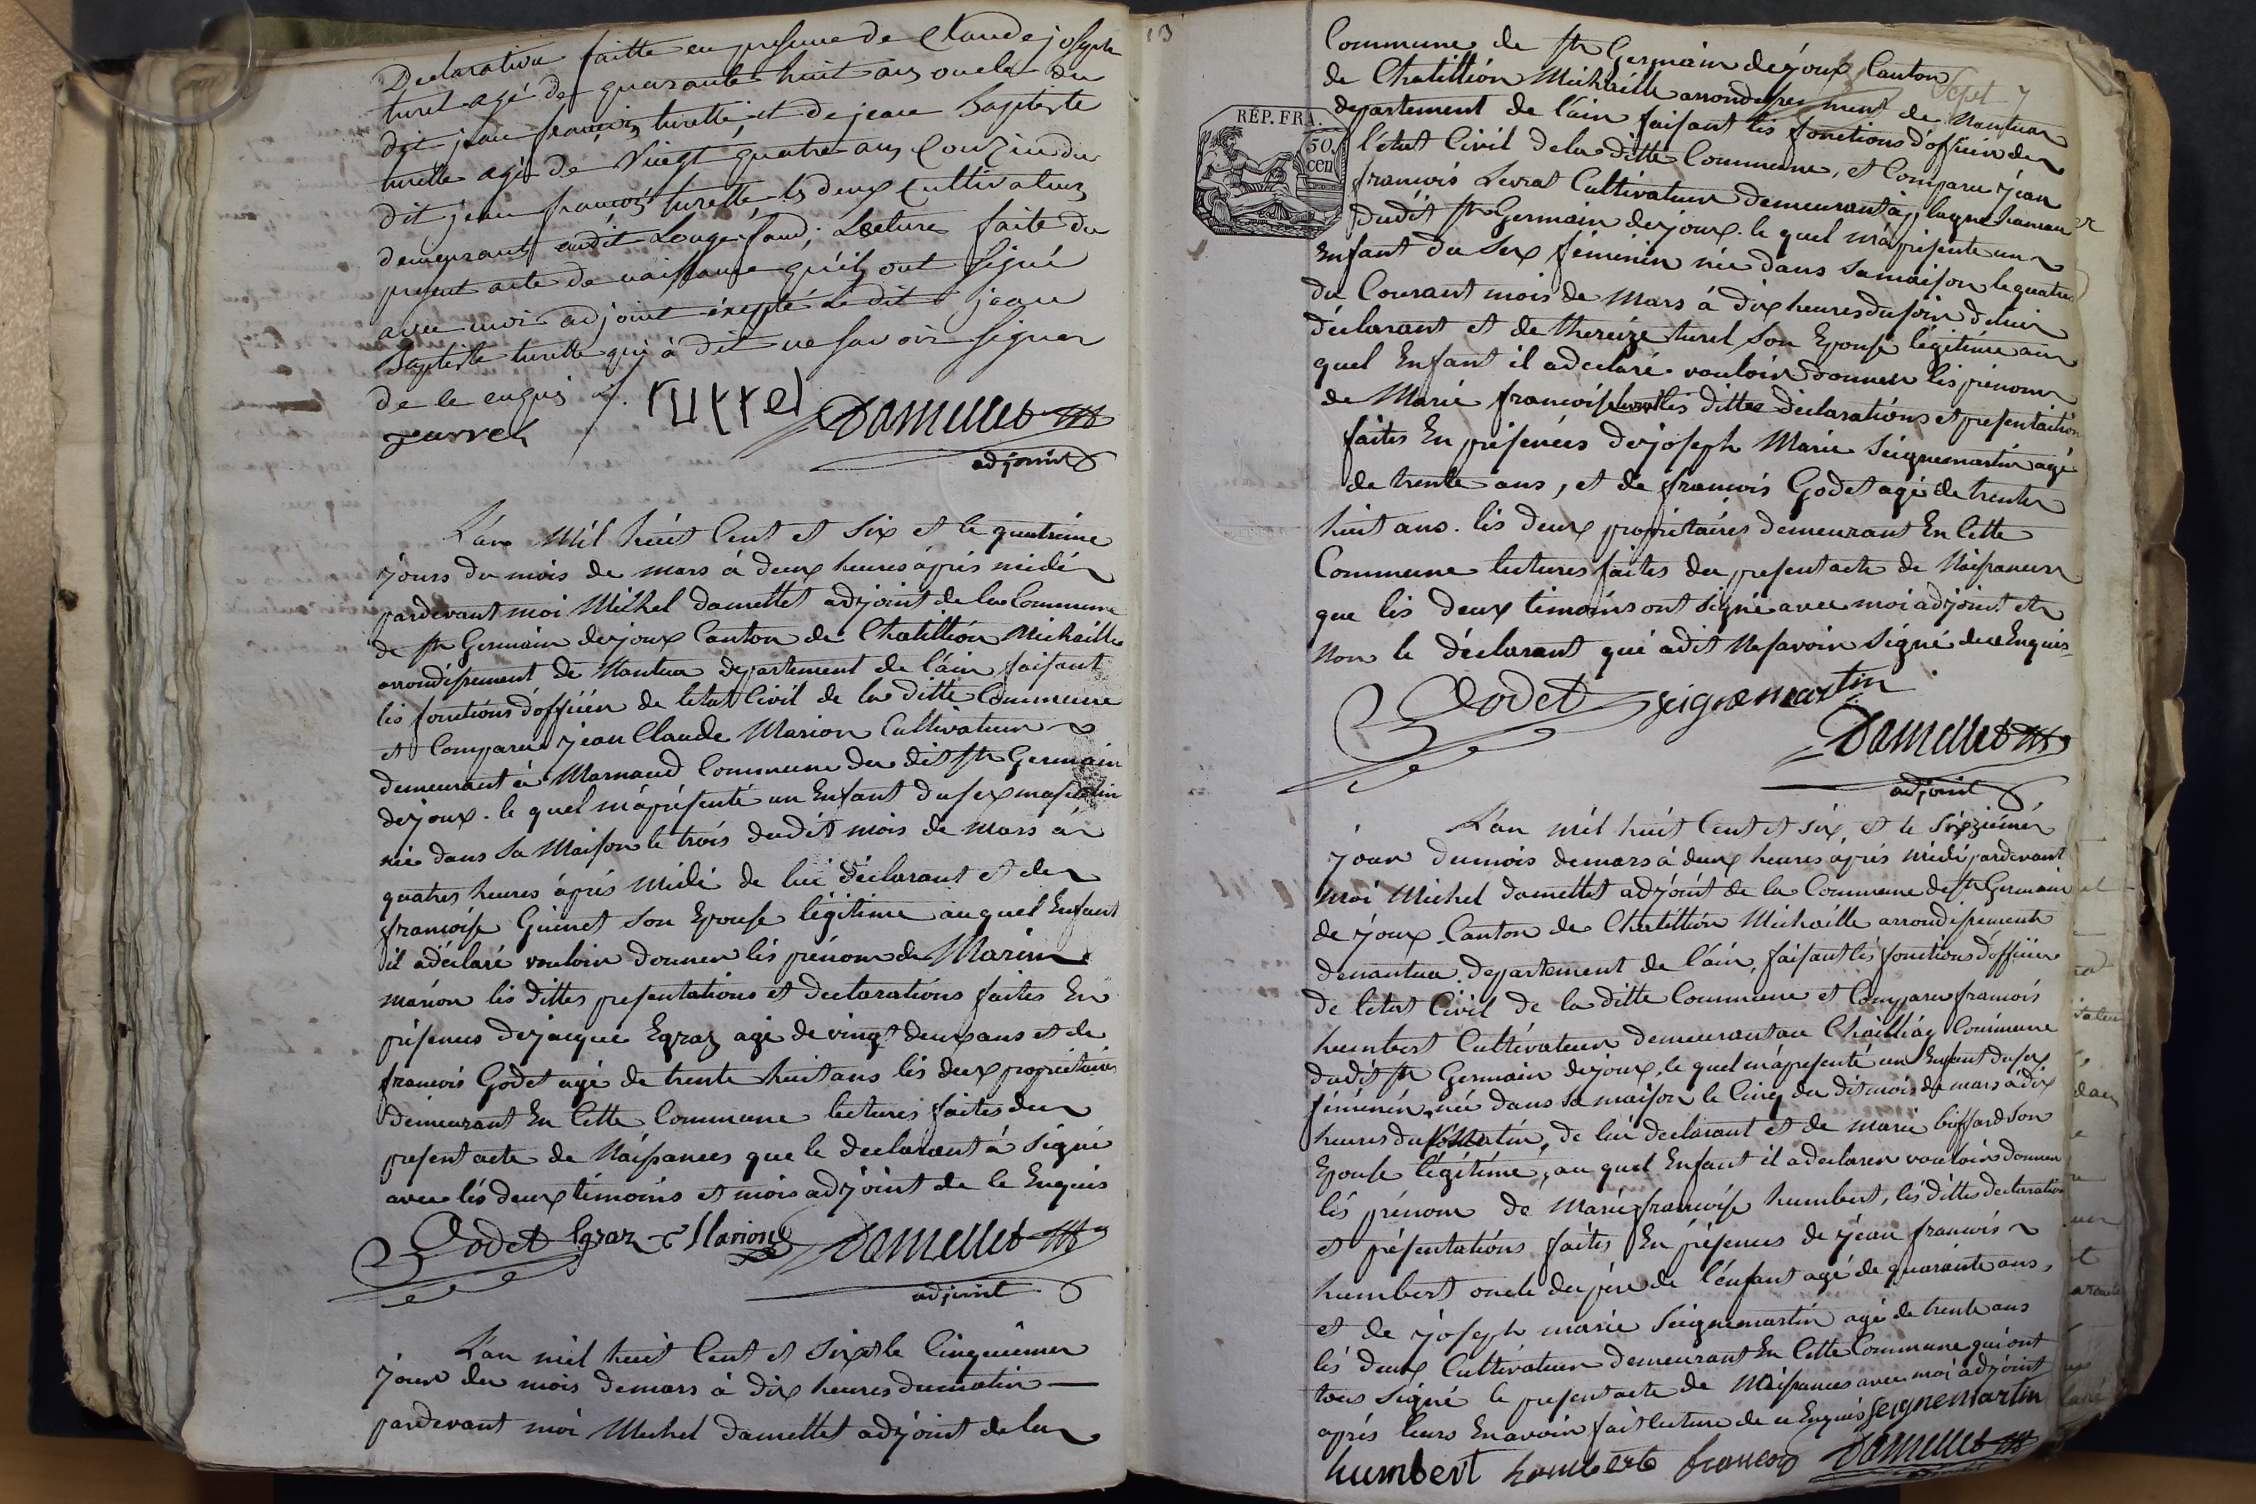 Declaration faitte en presence de Claude joseph
turel agé de quarante huit ans oncle du
dit jean françois turelle, et de jean Baptiste
turelle agé de vingt quatre ans Couzin du
dit jean françois turelle, ls deux Cultivateurs
demeurant audit Longefand; Lecture faite du
present acte de naissance qu'ils ont signé
avec moi adjoint éxepté le dit jean
Baptiste turelle qui à dit ne savoir signer
de ce enquis
turrel
Damellet
adjoint
L'an mil huit Cent et six et le quatrième
jours du mois de mars à deux heures après midi
pardevant moi Michel damellet adjoint de la Commune
de st Germain dejoux Canton de Chatillion Michaille
arrondissement de Nantua departement de l'ain faisant
lés fonctions d'officièr de letat Civil de la ditte Commune
et Comparu jean Claude Marion Cultivateur
demeurant à Marnaud Commune du dit st Germain
dejoux. le quel m'a présenté un Enfant du sex masculin
née dans sa Maison le trois dudit mois de mars à
quatres heures après midi de lui déclarant et de
françoise Guinet son Epouse légitime au quel Enfant
il a déclaré vouloir donner lés prénom de Marin
marion lés dittes presentations et declarations faites En
présences de jacque Egraz agé de vingt deux ans et de
françois Godet agé de trente huit ans lés deux propriétaires
demeurant En Cette Commune lectures faites du
present acte de Naissances que le declarant à signé
avec lés deux témoins et mois adjoint de ce Enquis
Godet Egraz Marion Damellet
adjoint
L'an mil huit Cent et six et le Cinquièmme
jour du mois de mars à dix heures du matin
pardevant moi Michel damellet adjoint de la
13
Sept 7
RÉP. FRA.
50.
cen
Commune de st Germain dejoux Canton
de Chatillión Michaille arrondissement de Nantua
departement de l'ain faisant lés fonctions d'officier de
l'état Civil de la ditte Commune, et Comparu jean
françois Levrat Cultivateur demeurant à plagne hameau
dudit st Germain dejoux. le quel m'a présenté un
Enfant du sex féminin née dans sa maison le quatre
du Courant mois de Mars à dix heures du soir de lui
déclarant et de thereize turel son Epouse légitime au
quel Enfant il a declaré vouloir donner lés prénom
de Marie françoise levrat lés dittes déclarations et presentation
faites En présences de joseph Marie Seignemartin agé
de trente ans, et de françois Godet agé de trente
huit ans. lés deux propriétaires demeurant En Cette
Commune lectures faites du present acte de Naissances
que lés deux témoins ont signé avec moi adjoint et
Non le déclarant qui a dit Ne savoir signé de ce Enquis
Godet Seignemartin
Damellet
adjoint
L'an mil huit Cent et six, et le sixzième
jour du mois de mars à deux heures après midi pardevant
moi Michel damellet adjoint de la Commune de st Germain
de joux Canton de Chatillion Michaille arrondissement
de nantua departement de l'ain, faisant lés fonctions d'officier
de l'etat Civil de la ditte Commune et Comparu françois
humbert Cultivateur demeurant au Commune
dudit st Germain dejoux, le quel m'a presenté un Enfant du sex
féminin, née dans sa maison le Cinq du dit mois de mars à dix
heures du matin, de lui declarant et de marie buffard son
Epouse légitime, au quel Enfant il a declarer vouloir donner
lés prénom de Marie françoise humbert, lés dittes declaration
et présentations faites En présences de jean françois
humbert oncle du père de l'enfant agé de quarante ans,
et de joseph marie Seignemartin agé de trente ans
lés deux Cultivateur demeurant En Cette Commune qui ont
tous signé le present acte de Naissances avec moi adjoint
après leurs En avoir fait lecture de ce Enquis Seignemartin
humbert humbert françois Damellet